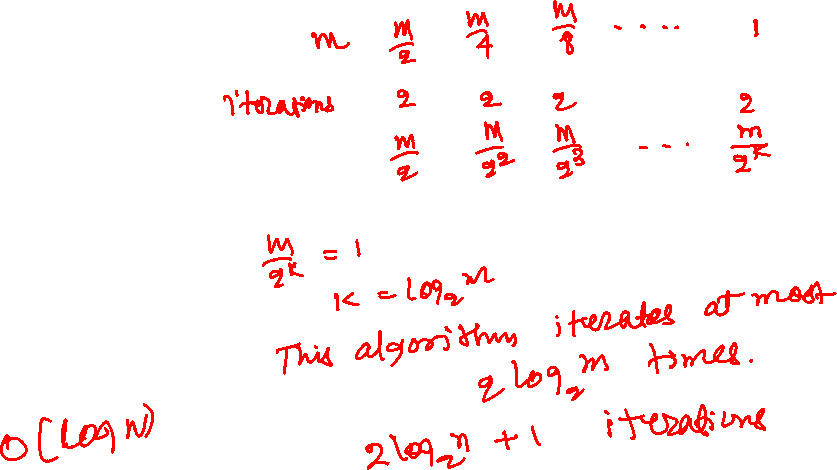 m m/2 m/4 m/8 .... 1
iterations 2 2 2 2
m/2 m/2² m/2³ ... m/2ᴷ
m/2ᴷ = 1
K = log₂m
This algorithm iterates at most
2 log₂m times.
O(log N)
2 log₂n + 1 iterations